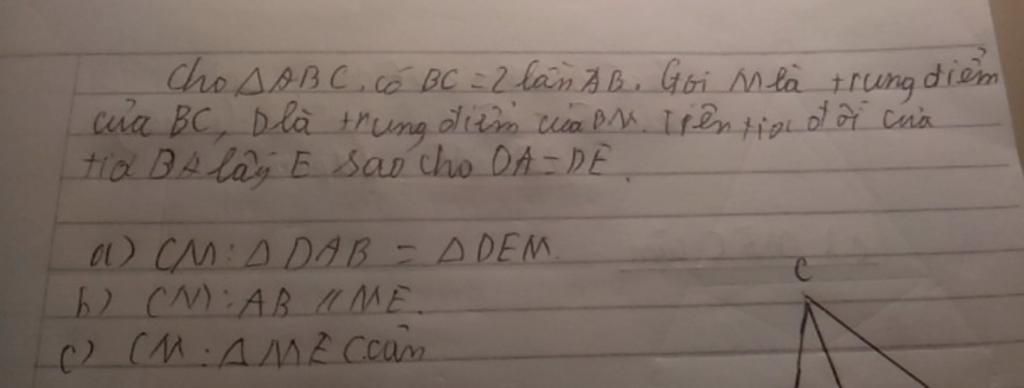 Cho △ABC. có BC = 2 lần AB. Gọi M là trung điểm
của BC, D là trung điểm của BM. Trên tia đối của
tia DA lấy E sao cho DA = DE.
a) CM: △ DAB = △ DEM.
b) CM: AB // ME.
c) CM: △ MEC cân
C